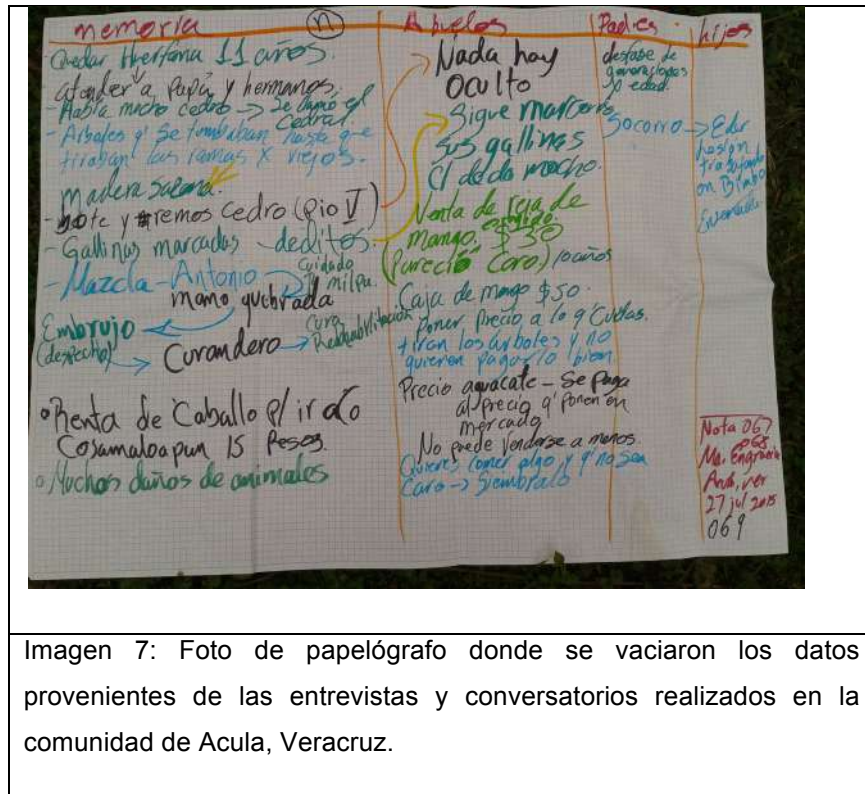 memoria
n
Quedar Huerfana 11 años.
atender a Papá y hermanos.
- Había mucho cedro → Se llamó el
Cedral.
- Arboles q' Se tumbaban hasta que
tiraban las ramas X viejos.
Madera
y remos cedro (Pio V)
- Gallinas marcadas - deditos
- Mazcla - Antonio
Cuidado
milpa.
mano quebrada
Embrujo
(despecho)
Curandero
Cura
• Renta de Caballo p/ ir a
Cosamaloapan 15 Pesos.
• Muchos daños de animales
Abuelos
Nada hay
oculto
Sigue
sus gallinas
el dedo mocho.
Venta de reja de
mango. $30
(Pareció Caro) 10 años
Caja de mango $50.
Poner Precio a lo q' Cuidas.
tiran los árboles y no
quieren pagarlo bien.
Precio aguacate - Se paga
al precio q' ponen en
mercado
No puede venderse a menos.
Quieres comer algo y q' no sea
Caro → Siembralo
Padres
desfase de
generaciones
edad.
Socorro →
hijos
Eder
trabajando
en Bimbo
Nota 067
068
Ma. Engracia
27 jul 2015
069
Imagen 7: Foto de papelógrafo donde se vaciaron los datos
provenientes de las entrevistas y conversatorios realizados en la
comunidad de Acula, Veracruz.